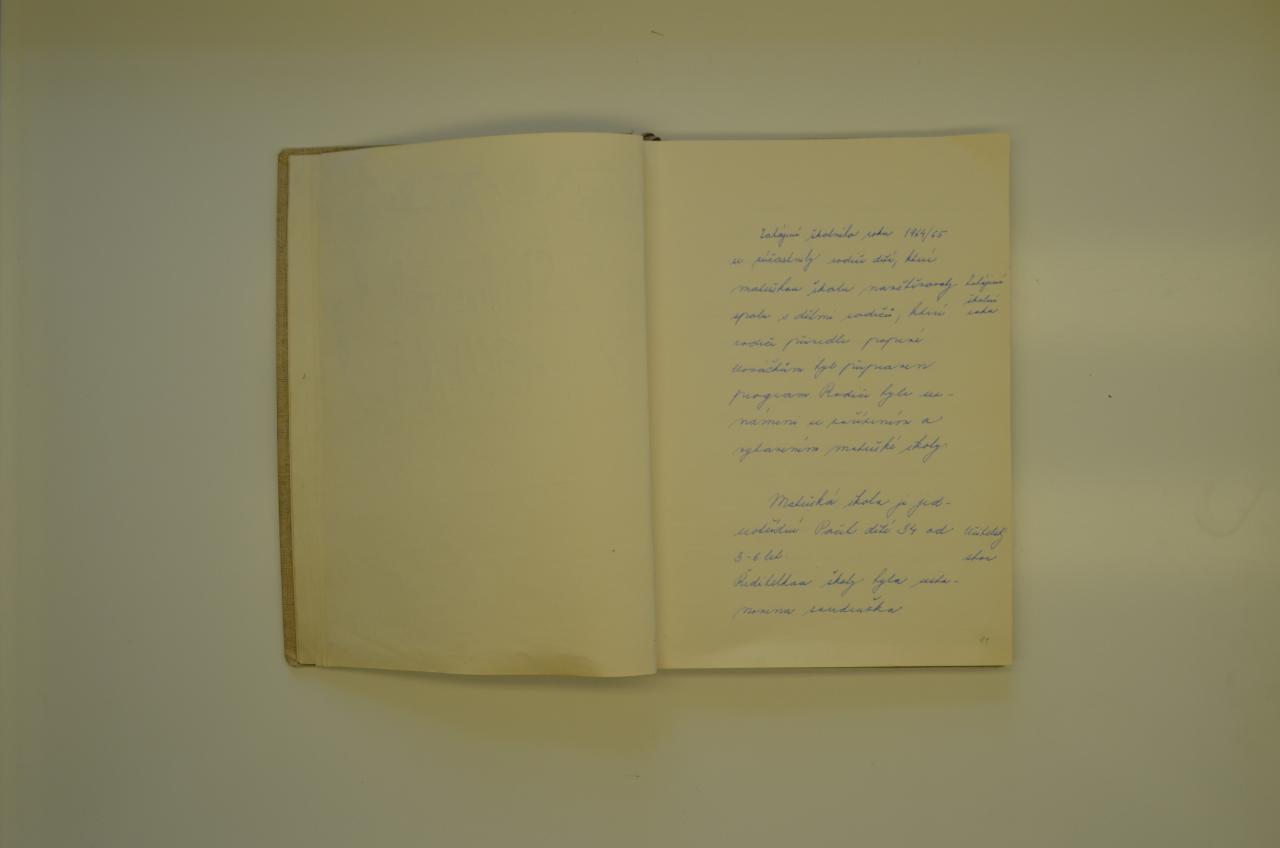 Zahájení školního roku 1964/65
se súčastnily rodiče dětí, které
mateřskou školu navštěvovaly
spolu s dětmi rodičů, které
rodiče přivedli poprvé
Nováčkům byl připraven
program Rodiče byli sez-
námeni se zařízením a
vybavením mateřské školy.
Zahájení
školní
roku
Mateřská škola je jed-
notřídní Počet dětí 34 od
3-6 let.
Ředitelkou školy byla usta-
novena soudružka
Učitelský
sbor